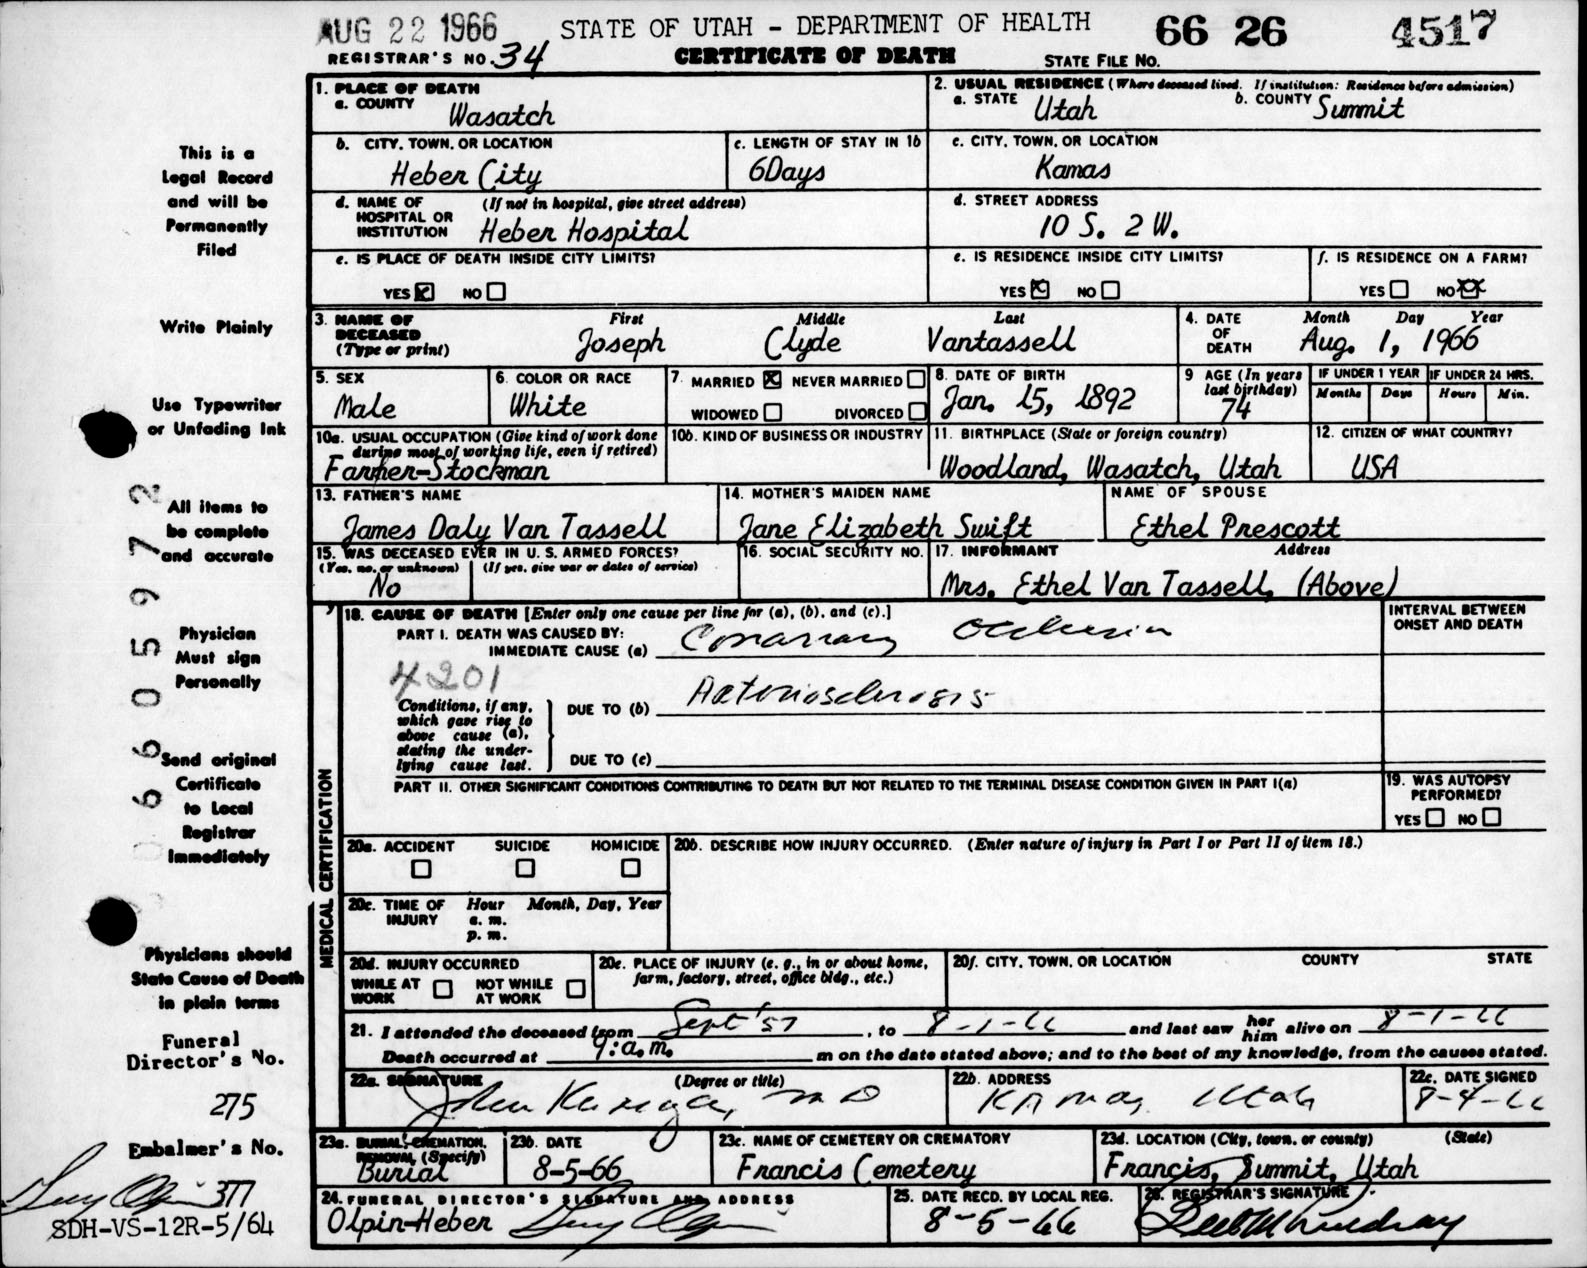 AUG 22 1966 STATE OF UTAH - DEPARTMENT OF HEALTH 66 26 4517
REGISTRAR'S NO. 34 CERTIFICATE OF DEATH STATE FILE NO.
This is a
Legal Record
and will be
Permanently
Filed
Write Plainly
Use Typewriter
or Unfading Ink
All items to
be complete
and accurate
Physician
Must sign
Personally
Send original
Certificate
to Local
Registrar
Immediately
Physicians should
State Cause of Death
in plain terms
Funeral
Director's No.
275
Embalmer's No.
377
SDH-VS-12R-5/64
660590972
1. PLACE OF DEATH
a. COUNTY
Wasatch
2. USUAL RESIDENCE (Where deceased lived. If institution: Residence before admission)
a. STATE Utah b. COUNTY Summit
b. CITY, TOWN, OR LOCATION
Heber City
c. LENGTH OF STAY IN 1b
6Days
c. CITY, TOWN, OR LOCATION
Kamas
d. NAME OF HOSPITAL OR INSTITUTION (If not in hospital, give street address)
Heber Hospital
d. STREET ADDRESS
10 S. 2 W.
e. IS PLACE OF DEATH INSIDE CITY LIMITS?
YES ☒ NO ☐
e. IS RESIDENCE INSIDE CITY LIMITS?
YES ☒ NO ☐
f. IS RESIDENCE ON A FARM?
YES ☐ NO ☒
3. NAME OF DECEASED (Type or print) First Middle Last
Joseph Clyde Vantassell
4. DATE OF DEATH Month Day Year
Aug. 1, 1966
5. SEX
Male
6. COLOR OR RACE
White
7. MARRIED ☒ NEVER MARRIED ☐
WIDOWED ☐ DIVORCED ☐
8. DATE OF BIRTH
Jan. 15, 1892
9 AGE (In years last birthday)
74
IF UNDER 1 YEAR IF UNDER 24 HRS.
Months Days Hours Min.
10a. USUAL OCCUPATION (Give kind of work done during most of working life, even if retired)
Farmer-Stockman
10b. KIND OF BUSINESS OR INDUSTRY
11. BIRTHPLACE (State or foreign country)
Woodland, Wasatch, Utah
12. CITIZEN OF WHAT COUNTRY?
USA
13. FATHER'S NAME
James Daly Van Tassell
14. MOTHER'S MAIDEN NAME
Jane Elizabeth Swift
NAME OF SPOUSE
Ethel Prescott
15. WAS DECEASED EVER IN U. S. ARMED FORCES?
(Yes, no, or unknown) (If yes, give war or dates of service)
No
16. SOCIAL SECURITY NO.
17. INFORMANT Address
Mrs. Ethel Van Tassell, (Above)
MEDICAL CERTIFICATION
18. CAUSE OF DEATH [Enter only one cause per line for (a), (b), and (c).]
INTERVAL BETWEEN ONSET AND DEATH
PART I. DEATH WAS CAUSED BY:
IMMEDIATE CAUSE (a) Coronary Occlusion
4201
Conditions, if any, which gave rise to above cause (a), stating the underlying cause last.
DUE TO (b) Arteriosclerosis
DUE TO (c)
PART II. OTHER SIGNIFICANT CONDITIONS CONTRIBUTING TO DEATH BUT NOT RELATED TO THE TERMINAL DISEASE CONDITION GIVEN IN PART I(a)
19. WAS AUTOPSY PERFORMED?
YES ☐ NO ☐
20a. ACCIDENT SUICIDE HOMICIDE
☐ ☐ ☐
20b. DESCRIBE HOW INJURY OCCURRED. (Enter nature of injury in Part I or Part II of item 18.)
20c. TIME OF INJURY Hour Month, Day, Year
a. m.
p. m.
20d. INJURY OCCURRED
WHILE AT WORK ☐ NOT WHILE AT WORK ☐
20e. PLACE OF INJURY (e. g., in or about home, farm, factory, street, office bldg., etc.)
20f. CITY, TOWN, OR LOCATION COUNTY STATE
21. I attended the deceased from Sept '57, to 8-1-66 and last saw her him alive on 8-1-66
Death occurred at 9:a.m. m on the date stated above; and to the best of my knowledge, from the causes stated.
22a. SIGNATURE (Degree or title)
John MD
22b. ADDRESS
Kamas, Utah
22c. DATE SIGNED
8-4-66
23a. BURIAL, CREMATION, REMOVAL, (Specify)
Burial
23b. DATE
8-5-66
23c. NAME OF CEMETERY OR CREMATORY
Francis Cemetery
23d. LOCATION (City, town, or county) (State)
Francis, Summit, Utah
24. FUNERAL DIRECTOR'S SIGNATURE AND ADDRESS
Olpin-Heber
25. DATE RECD. BY LOCAL REG.
8-5-66
26. REGISTRAR'S SIGNATURE